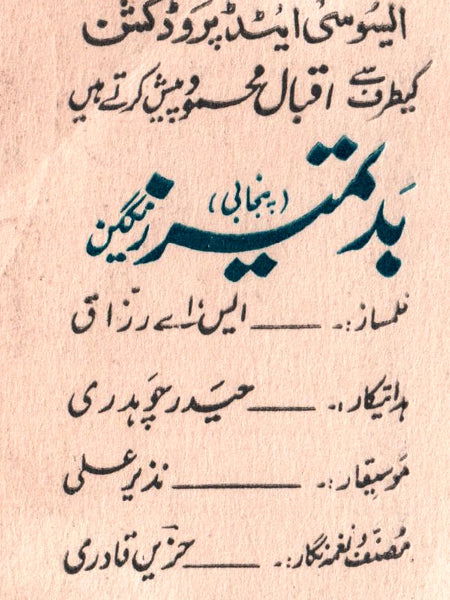 ایسوسی ایٹڈ پروڈکشن
کیطرف سے اقبال محمود پیش کرتے ہیں
بدتمیز (پنجابی) رنگین
فلمساز:۔ ایس۔ اے رزاق
ہدایتکار:۔ حیدر چوہدری
موسیقار:۔ نذیر علی
مصنف و نغمہ نگار:۔ حزیں قادری